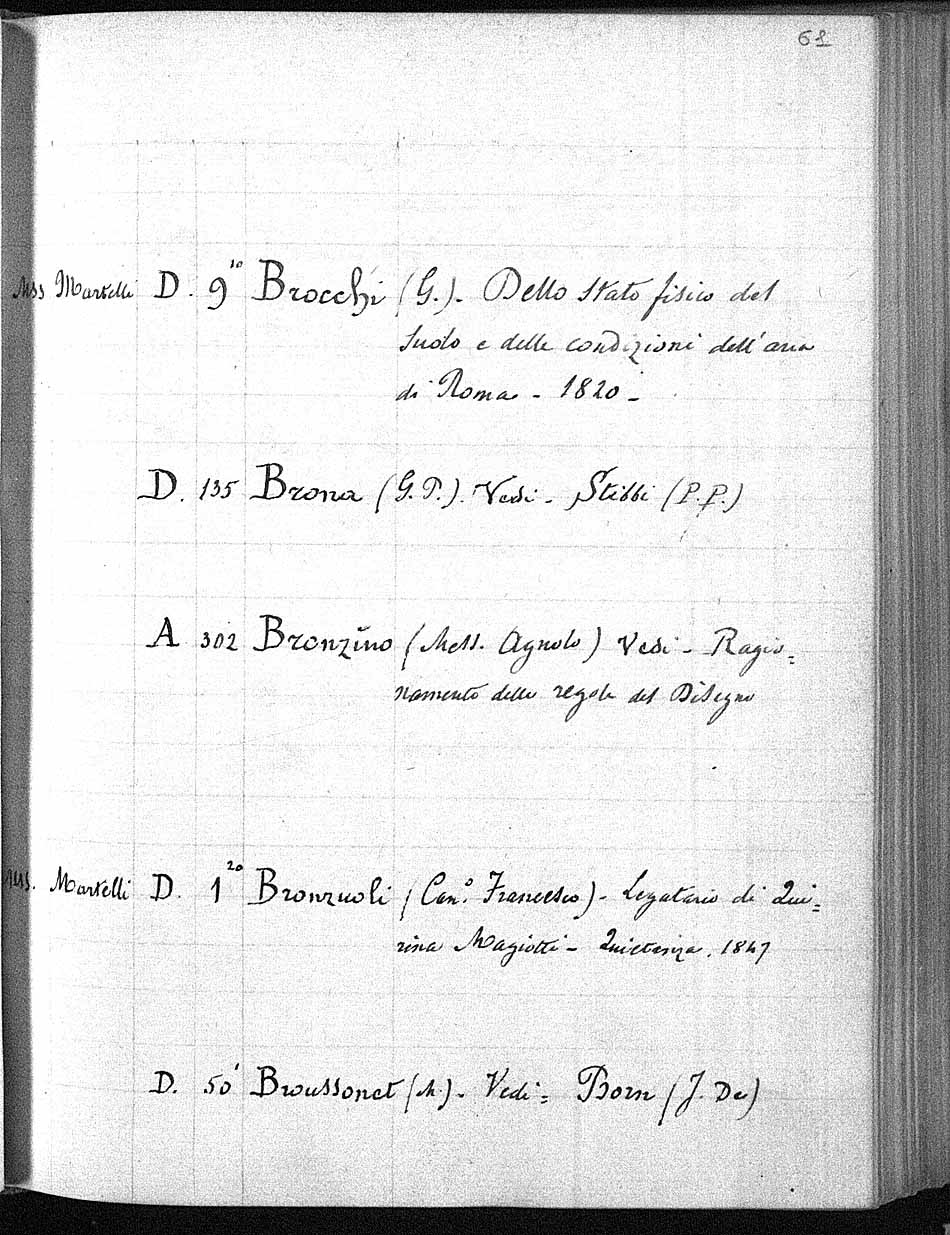 61
Mss Martelli D. 9¹⁰ Brocchi (G.). Dello Stato fisico del
suolo e delle condizioni dell'aria
di Roma - 1820 -
D. 135 Brona (G. P.). Vedi - Stibbi (P. P.)
A 302 Bronzino (Mess. Agnolo) Vedi - Ragio=
namento delle regole del Disegno
Mss. Martelli D. 1²⁰ Bronzuoli (Can.º Francesco) - Legatario di Qui=
rina Magiotti - Quietanza. 1847
D. 50' Broussonet (M.). Vedi = Born (J. De)